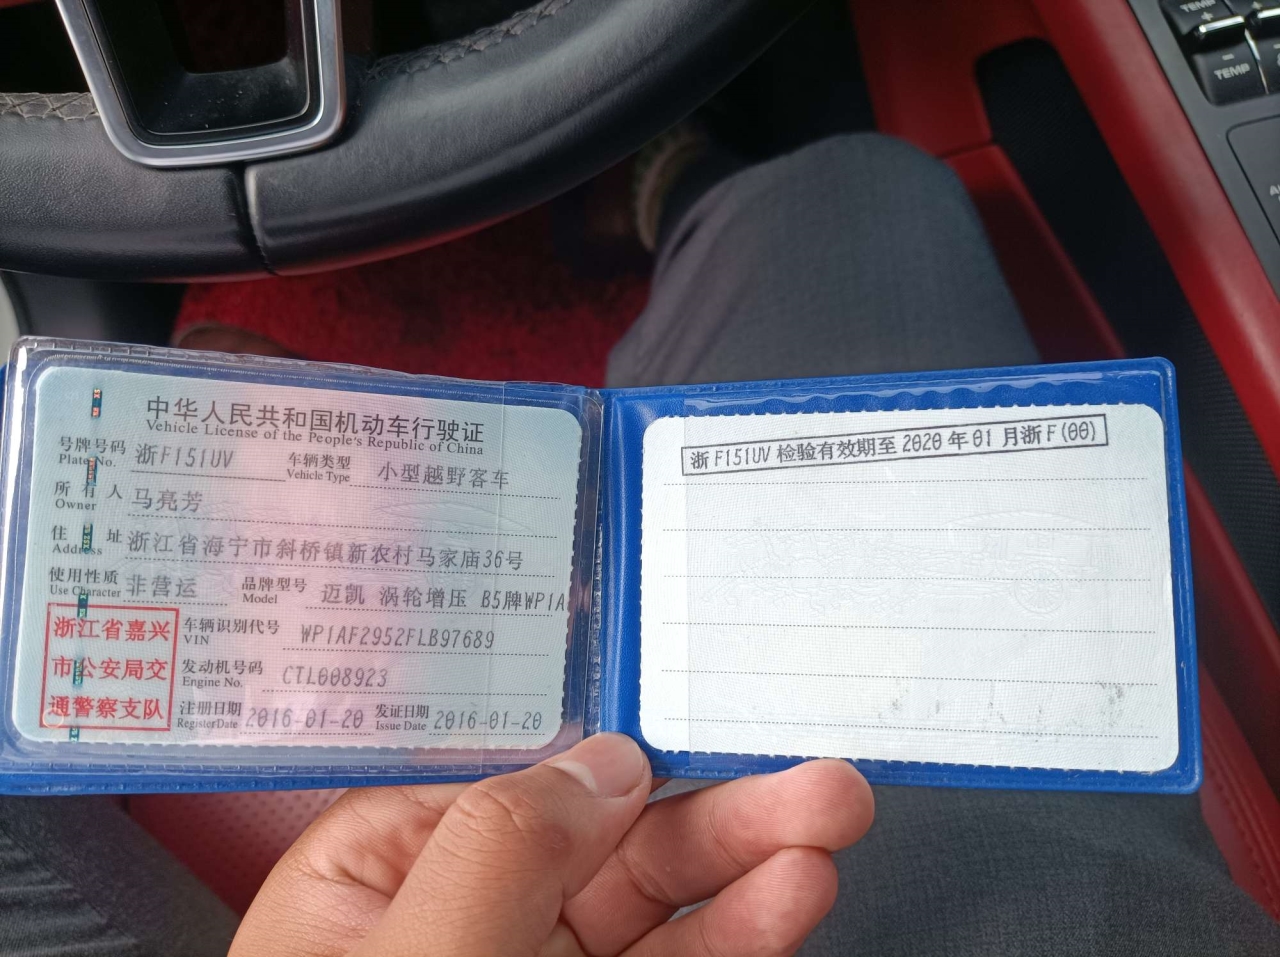 TEMP
TEMP
中华人民共和国机动车行驶证
Vehicle License of the People's Republic of China
号牌号码 浙F151UV 车辆类型 小型越野客车
Plate No. Vehicle Type
所有人 马亮芳
Owner
住址 浙江省海宁市斜桥镇新农村马家庙36号
Address
使用性质 非营运 品牌型号 迈凯 涡轮增压 B5牌WP1A
Use Character Model
浙江省嘉兴
市公安局交
通警察支队
车辆识别代号 WP1AF2952FLB97689
VIN
发动机号码 CTL008923
Engine No.
注册日期 2016-01-20 发证日期 2016-01-20
Register Date Issue Date
浙F151UV 检验有效期至 2020 年 01 月浙F(00)